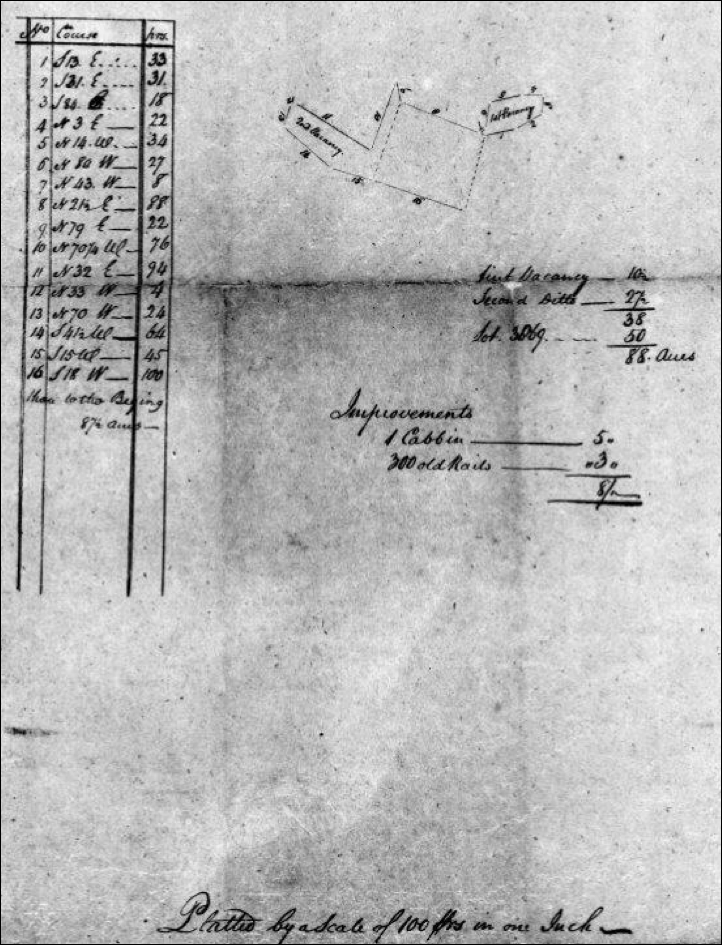 No Course prs.
1 S 13 E 33
2 S 31 E 31
3 S 84 E 18
4 N 3 E 22
5 N 14 W 34
6 N 80 W 27
7 N 43 W 8
8 N 21½ E 88
9 N 79 E 22
10 N 70¼ W 76
11 N 32 E 94
12 N 33 W 4
13 N 70 W 24
14 S 41½ W 64
15 S 15 W 45
16 S 18 W 100
then to the Beging
87½ Acres
2nd Vacancy
1st Vacancy
First Vacancy 10½
Second Ditto 27½
38
Lot. 3069 50
88. Acres
Improvements
1 Cabbin 5"
300 old Rails "3"
8/
Platted by a Scale of 100 prs in one Inch